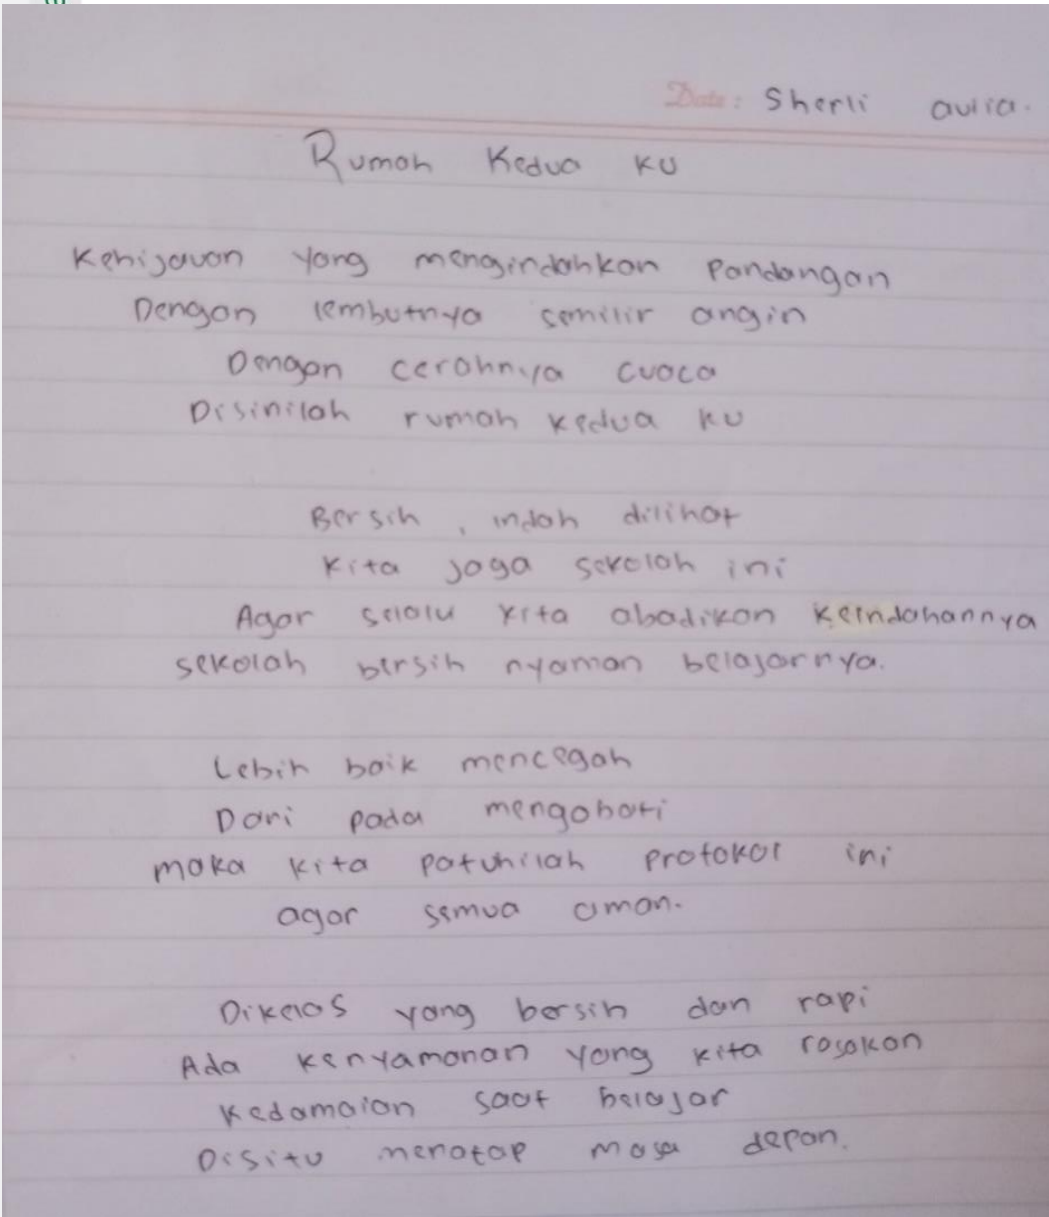 Date: Sherli aulia.
Rumah Kedua ku
Kehijauan yang mengindahkan Pandangan
Dengan lembutnya semilir angin
Dengan cerahnya cuaca
Disinilah rumah kedua ku
Bersih, indah dilihat
Kita jaga sekolah ini
Agar selalu kita abadikan keindahannya
sekolah bersih nyaman belajarnya.
Lebih baik mencegah
Dari pada mengobati
maka kita patuhilah protokol ini
agar semua aman.
Dikelas yang bersih dan rapi
Ada kenyamanan yang kita rasakan
Kedamaian saat belajar
Disitu menatap masa depan.